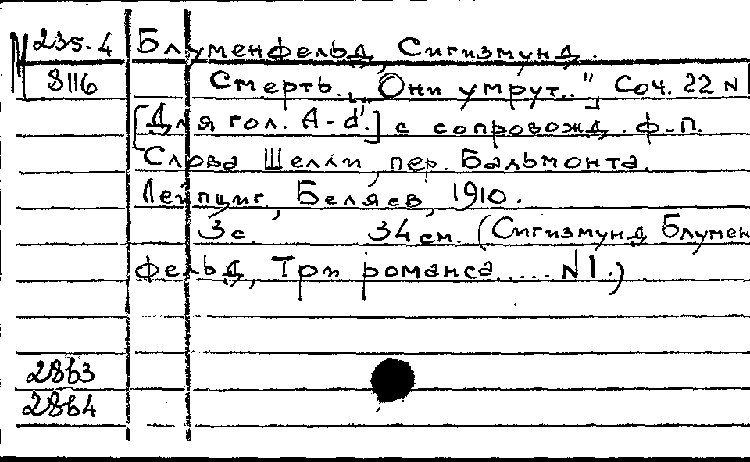 235-4 Блуменфельд, Сигизмунд.
8116 Смерть. „Они умрут.." Соч. 22 N
[Для гол. A-d'.] с сопровожд. ф-п.
Слова Шелли, пер. Бальмонта.
Лейпциг, Беляев, 1910.
3с. 34 см. (Сигизмунд Блумен
фельд, Три романса..... N1.)
2863
2864